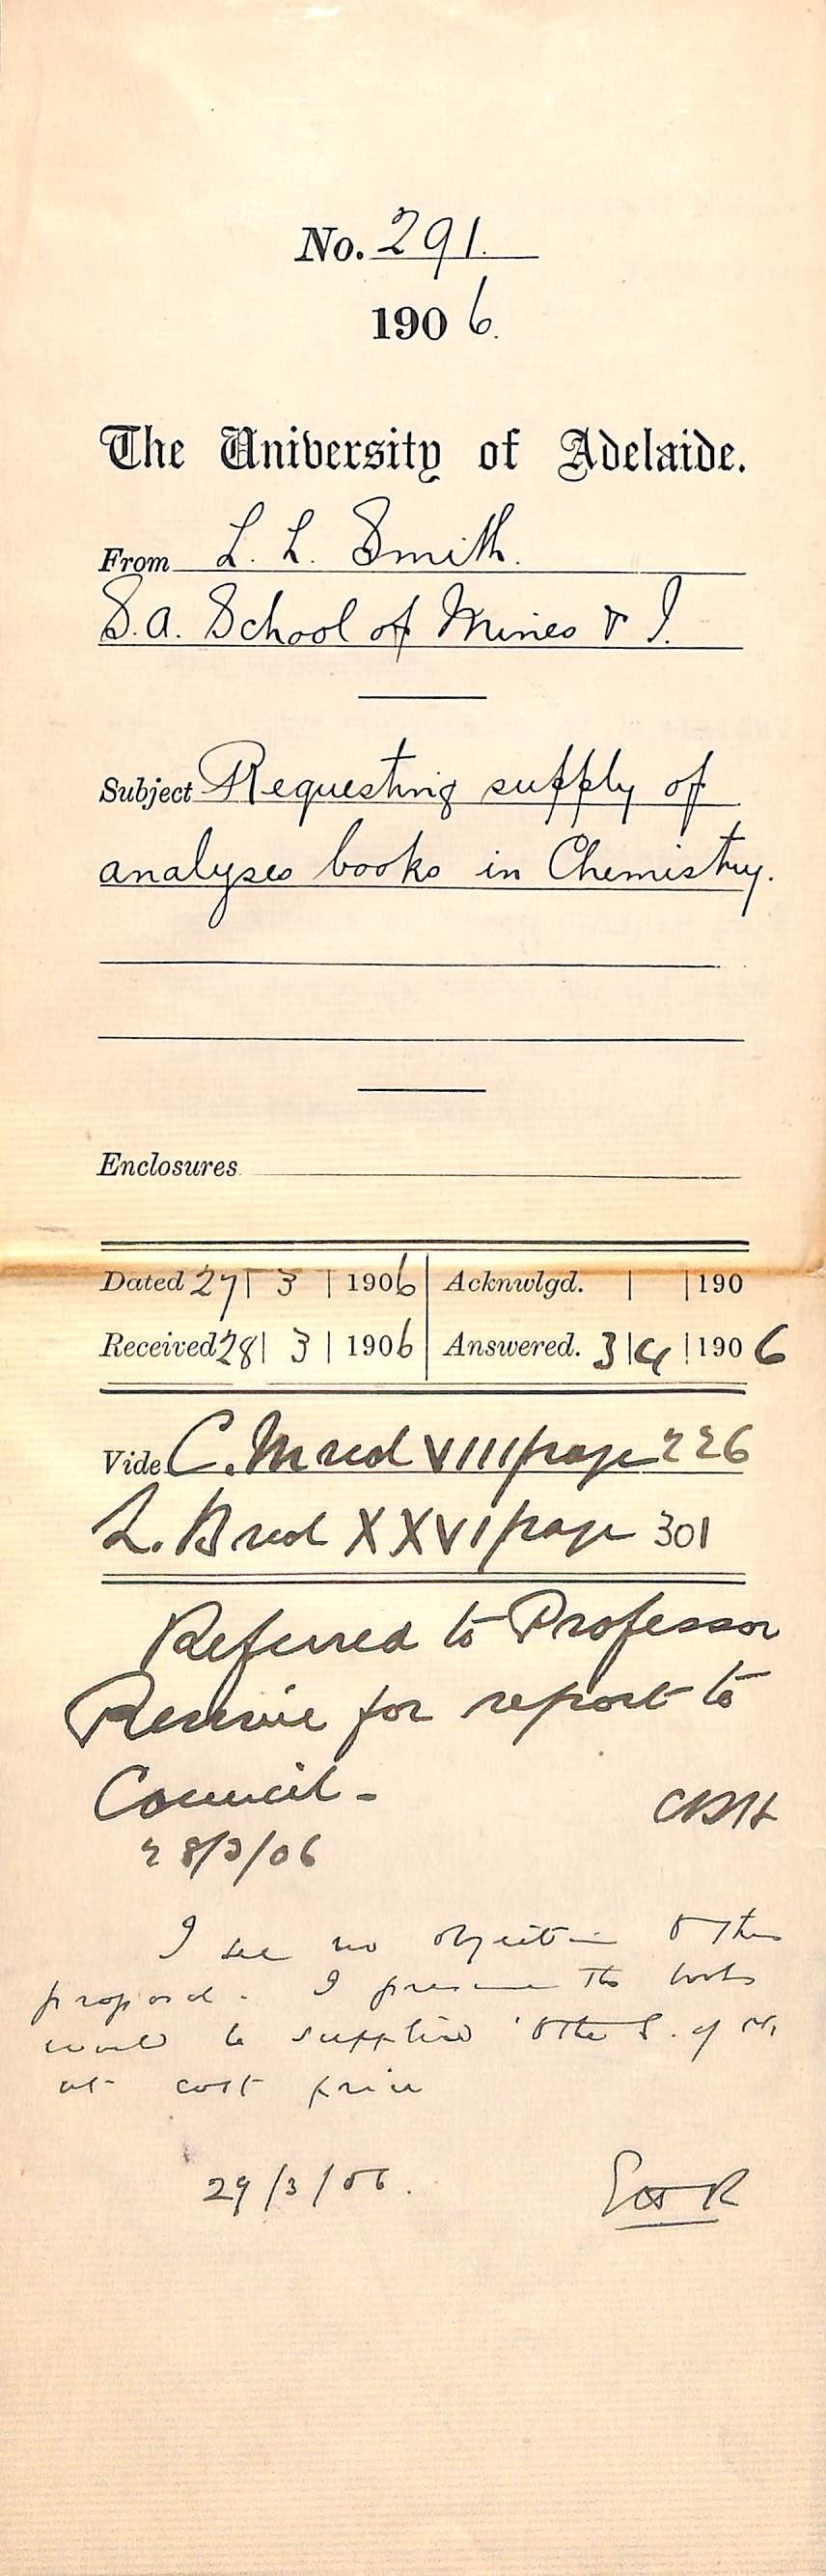 No. 291.
1906.
The University of Adelaide.
From L. L. Smith.
S.A. School of Mines & I.
Subject Requesting supply of
analyses books in Chemistry.
Enclosures
Dated 27 | 3 | 1906 | Acknwlgd. | | 190
Received 28 | 3 | 1906 | Answered. 3 | 4 | 1906
Vide C. M red VIII page 226
L. B red XXVI page 301
Referred to Professor
Rennie for report to
Council -
CRH
28/3/06
I see no objection to the
proposal. I presume the books
would be supplied to the S. of M.
at cost price
29/3/06.
EHR